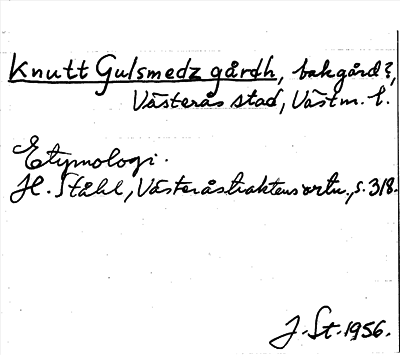 Knutt Gulsmedz gårdh, bakgård?,
Västerås stad, Västm. l.
Etymologi.
H. Ståhl, Västeråstraktens ortn., s. 318.
J. St. 1956.